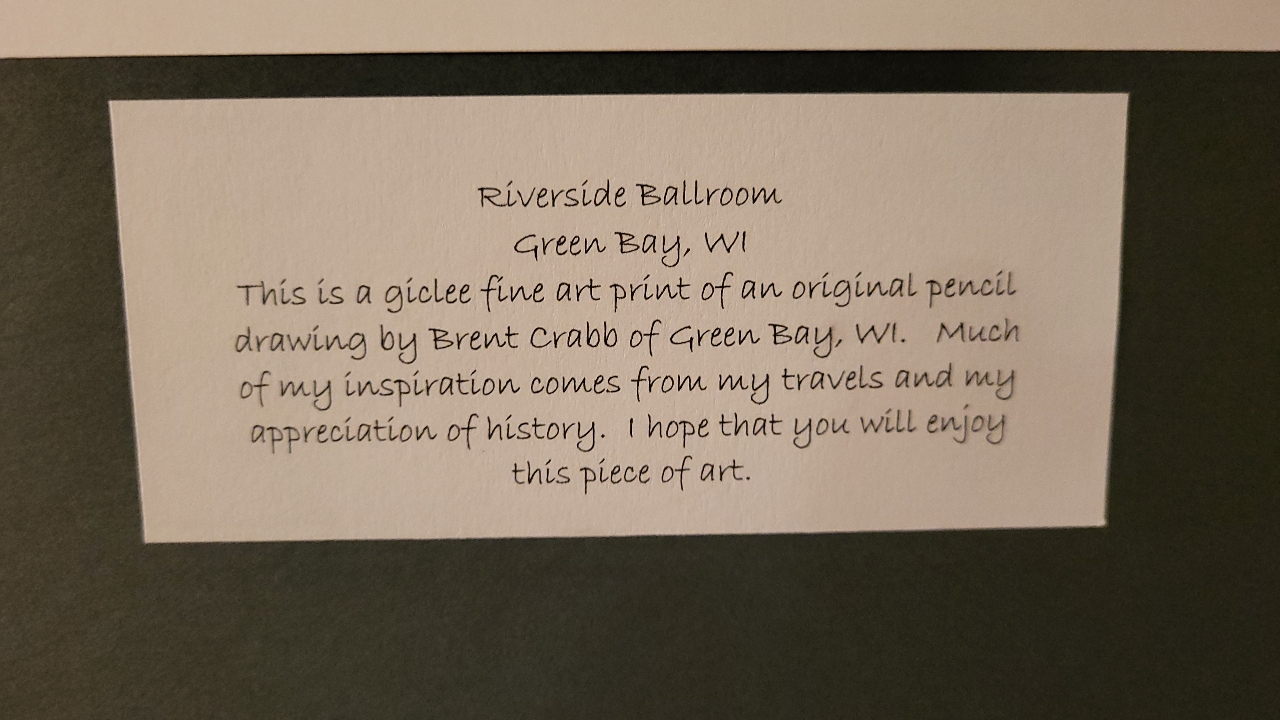 Riverside Ballroom
Green Bay, WI
This is a giclee fine art print of an original pencil
drawing by Brent Crabb of Green Bay, WI.  Much
of my inspiration comes from my travels and my
appreciation of history.  I hope that you will enjoy
this piece of art.